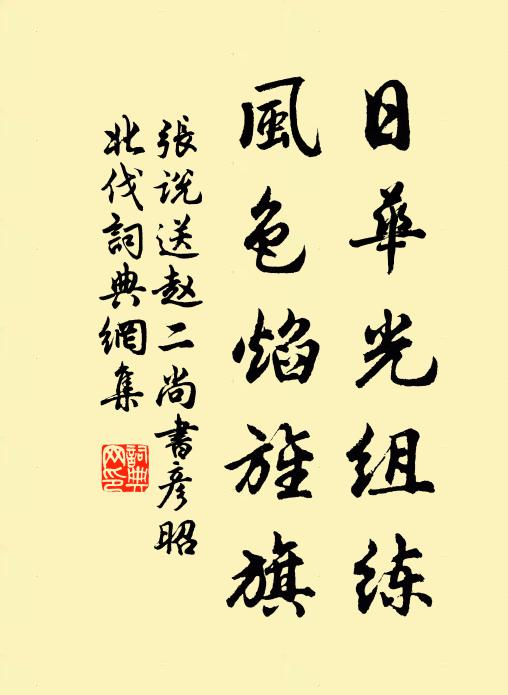 日華光组练
風色焰旌旗
張说送赵二尚書彦昭
北伐詞典網集
詞典
网印